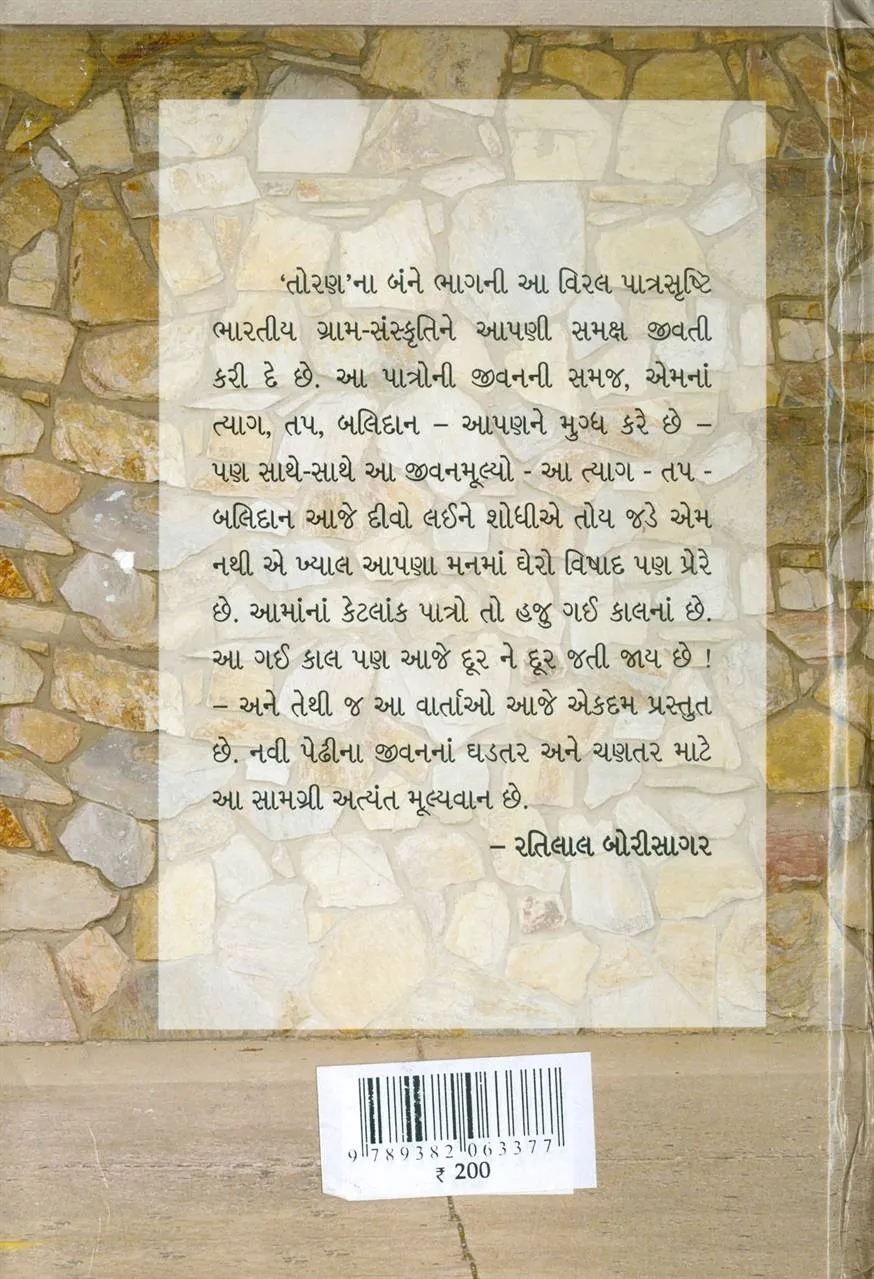 ‘તોરણ’ના બંને ભાગની આ વિરલ પાત્રસૃષ્ટિ
ભારતીય ગ્રામ-સંસ્કૃતિને આપણી સમક્ષ જીવતી
કરી દે છે. આ પાત્રોની જીવનની સમજ, એમનાં
ત્યાગ, તપ, બલિદાન – આપણને મુગ્ધ કરે છે –
પણ સાથે-સાથે આ જીવનમૂલ્યો - આ ત્યાગ - તપ -
બલિદાન આજે દીવો લઈને શોધીએ તોય જડે એમ
નથી એ ખ્યાલ આપણા મનમાં ઘેરો વિષાદ પણ પ્રેરે
છે. આમાંનાં કેટલાંક પાત્રો તો હજુ ગઈ કાલનાં છે.
આ ગઈ કાલ પણ આજે દૂર ને દૂર જતી જાય છે !
– અને તેથી જ આ વાર્તાઓ આજે એકદમ પ્રસ્તુત
છે. નવી પેઢીના જીવનનાં ઘડતર અને ચણતર માટે
આ સામગ્રી અત્યંત મૂલ્યવાન છે.
– રતિલાલ બોરીસાગર
9 789382 063377
₹ 200